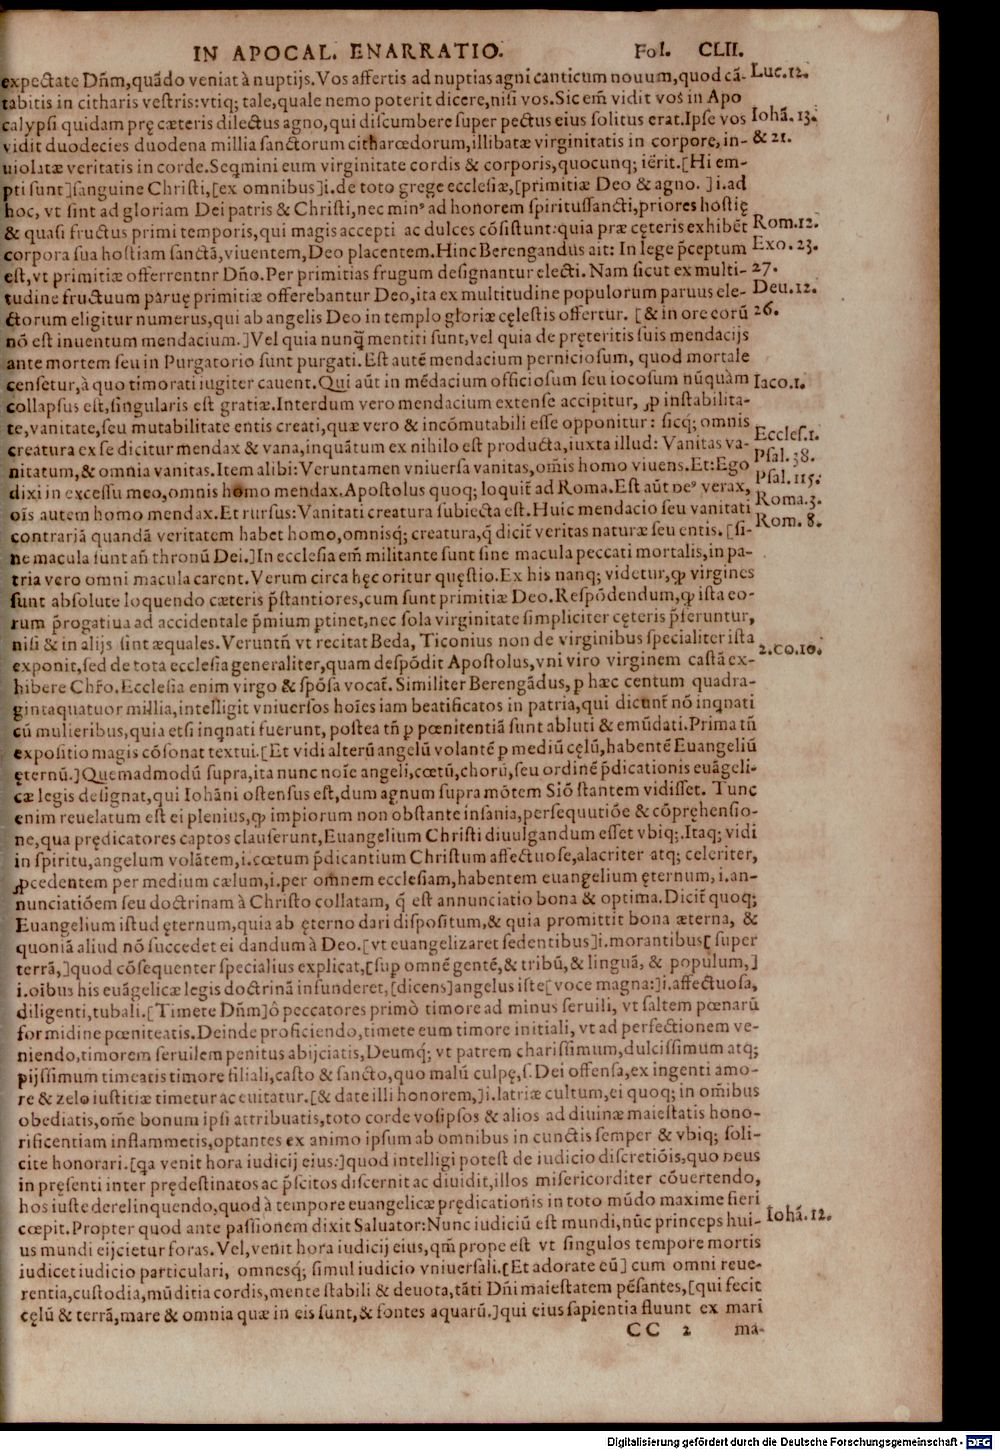 IN APOCAL. ENARRATIO. Fol. CLII.
expectate Dñm, quãdo veniat à nuptijs. Vos affertis ad nuptias agni canticum nouum, quod cã-
Luc. 12.
tabitis in citharis vestris: vtiq; tale, quale nemo poterit dicere, nisi vos. Sic em̃ vidit vos in Apo
calypsi quidam prę cæteris dilectus agno, qui discumbere super pectus eius solitus erat. Ipse vos
Iohã. 13.
vidit duodecies duodena millia sanctorum citharœdorum, illibatæ virginitatis in corpore, in-
& 21.
uiolatæ veritatis in corde. Seqmini eum virginitate cordis & corporis, quocunq; ierit. [Hi em-
pti sunt] sanguine Christi, [ex omnibus] i. de toto grege ecclesiæ, [primitiæ Deo & agno.] i. ad
hoc, vt sint ad gloriam Dei patris & Christi, nec minꝰ ad honorem spiritussancti, priores hostię
& quasi fructus primi temporis, qui magis accepti ac dulces cõsistunt: quia præ cęteris exhibẽt
Rom. 12.
corpora sua hostiam sanctã, viuentem, Deo placentem. Hinc Berengandus ait: In lege p̃ceptum
Exo. 23.
est, vt primitiæ offerrentnr Dño. Per primitias frugum designantur electi. Nam sicut ex multi-
27.
tudine fructuum paruę primitiæ offerebantur Deo, ita ex multitudine populorum paruus ele-
Deu. 12.
ctorum eligitur numerus, qui ab angelis Deo in templo gloriæ cęlestis offertur. [& in ore eorũ
26.
nõ est inuentum mendacium.] Vel quia nunq̃ mentiti sunt, vel quia de pręteritis suis mendacijs
ante mortem seu in Purgatorio sunt purgati. Est autẽ mendacium perniciosum, quod mortale
censetur, à quo timorati iugiter cauent. Qui aũt in mẽdacium officiosum seu iocosum nũquàm
Iaco. 1.
collapsus est, singularis est gratiæ. Interdum vero mendacium extense accipitur, ꝓ instabilita-
te, vanitate, seu mutabilitate entis creati, quæ vero & incõmutabili esse opponitur: sicq; omnis
creatura ex se dicitur mendax & vana, inquãtum ex nihilo est producta, iuxta illud: Vanitas va-
Eccles. 1.
nitatum, & omnia vanitas. Item alibi: Veruntamen vniuersa vanitas, om̃is homo viuens. Et: Ego
Psal. 38.
dixi in excessu meo, omnis homo mendax. Apostolus quoq; loquit̃ ad Roma. Est aũt Deꝰ verax,
Psal. 115.
oĩs autem homo mendax. Et rursus: Vanitati creatura subiecta est. Huic mendacio seu vanitati
Roma. 3.
contrariã quandã veritatem habet homo, omnisq; creatura, q̃ dicit̃ veritas naturæ seu entis. [si-
Rom. 8.
ne macula sunt añ thronũ Dei.] In ecclesia em̃ militante sunt sine macula peccati mortalis, in pa-
tria vero omni macula carent. Verum circa hęc oritur quęstio. Ex his nanq; videtur, ꝙ virgines
sunt absolute loquendo cæteris p̃stantiores, cum sunt primitiæ Deo. Respõdendum, ꝙ ista eo-
rum p̃rogatiua ad accidentale p̃mium ꝑtinet, nec sola virginitate simpliciter cęteris p̃feruntur,
nisi & in alijs sint æquales. Veruntñ vt recitat Beda, Ticonius non de virginibus specialiter ista
exponit, sed de tota ecclesia generaliter, quam despõdit Apostolus, vni viro virginem castã ex-
2. Co. 10.
hibere Chr̃o. Ecclesia enim virgo & spõsa vocat̃. Similiter Berengãdus, ꝑ hæc centum quadra-
gintaquatuor millia, intelligit vniuersos hoĩes iam beatificatos in patria, qui dicunt̃ nõ inqnati
cũ mulieribus, quia etsi inqnati fuerunt, postea tñ ꝑ pœnitentiã sunt abluti & emũdati. Prima tñ
expositio magis cõsonat textui. [Et vidi alterũ angelũ volantẽ ꝑ mediũ cęlũ, habentẽ Euangeliũ
ęternũ.] Quemadmodũ supra, ita nunc noĩe angeli, cœtũ, chorũ, seu ordinẽ p̃dicationis euãgeli-
cæ legis designat, qui Iohãni ostensus est, dum agnum supra mõtem Siõ stantem vidisset. Tunc
enim reuelatum est ei plenius, ꝙ impiorum non obstante insania, persequutiõe & cõprehensio-
ne, qua prędicatores captos clauserunt, Euangelium Christi diuulgandum esset vbiq;. Itaq; vidi
in spiritu, angelum volãtem, i. cœtum p̃dicantium Christum affectuose, alacriter atq; celeriter,
ꝓcedentem per medium cælum, i. per omnem ecclesiam, habentem euangelium ęternum, i. an-
nunciatiõem seu doctrinam à Christo collatam, q̃ est annunciatio bona & optima. Dicit̃ quoq;
Euangelium istud ęternum, quia ab ęterno dari dispositum, & quia promittit bona æterna, &
quoniã aliud nõ succedet ei dandum à Deo. [vt euangelizaret sedentibus] i. morantibus [super
terrã,] quod cõsequenter specialius explicat, [sup omnẽ gentẽ, & tribũ, & linguã, & populum,]
i. oĩbus his euãgelicæ legis doctrinã infunderet, [dicens] angelus iste [voce magna:] i. affectuosa,
diligenti, tubali. [Timete Dñm] ô peccatores primò timore ad minus seruili, vt saltem pœnarũ
formidine pœniteatis. Deinde proficiendo, timete eum timore initiali, vt ad perfectionem ve-
niendo, timorem seruilem penitus abijciatis, Deumq́; vt patrem charissimum, dulcissimum atq;
pijssimum timeatis timore filiali, casto & sancto, quo malũ culpę, s. Dei offensa, ex ingenti amo-
re & zelo iustitiæ timetur ac euitatur. [& date illi honorem,] i. latriæ cultum, ei quoq; in om̃ibus
obediatis, om̃e bonum ipsi attribuatis, toto corde vosipsos & alios ad diuinæ maiestatis hono-
rificentiam inflammetis, optantes ex animo ipsum ab omnibus in cunctis semper & vbiq; soli-
cite honorari. [qa venit hora iudicij eius:] quod intelligi potest de iudicio discretiõis, quo Deus
in pręsenti inter prędestinatos ac p̃scitos discernit ac diuidit, illos misericorditer cõuertendo,
hos iuste derelinquendo, quod à tempore euangelicæ prędicationis in toto mũdo maxime fieri
cœpit. Propter quod ante passionem dixit Saluator: Nunc iudiciũ est mundi, nũc princeps hui-
Iohã. 12.
us mundi eijcietur foras. Vel, venit hora iudicij eius, qm̃ prope est vt singulos tempore mortis
iudicet iudicio particulari, omnesq́; simul iudicio vniuersali. [Et adorate eũ] cum omni reue-
rentia, custodia, mũditia cordis, mente stabili & deuota, tãti Dñi maiestatem pẽsantes, [qui fecit
cęlũ & terrã, mare & omnia quæ in eis sunt, & fontes aquarũ.] qui eius sapientia fluunt ex mari
CC 2 ma-
Digitalisierung gefördert durch die Deutsche Forschungsgemeinschaft - DFG